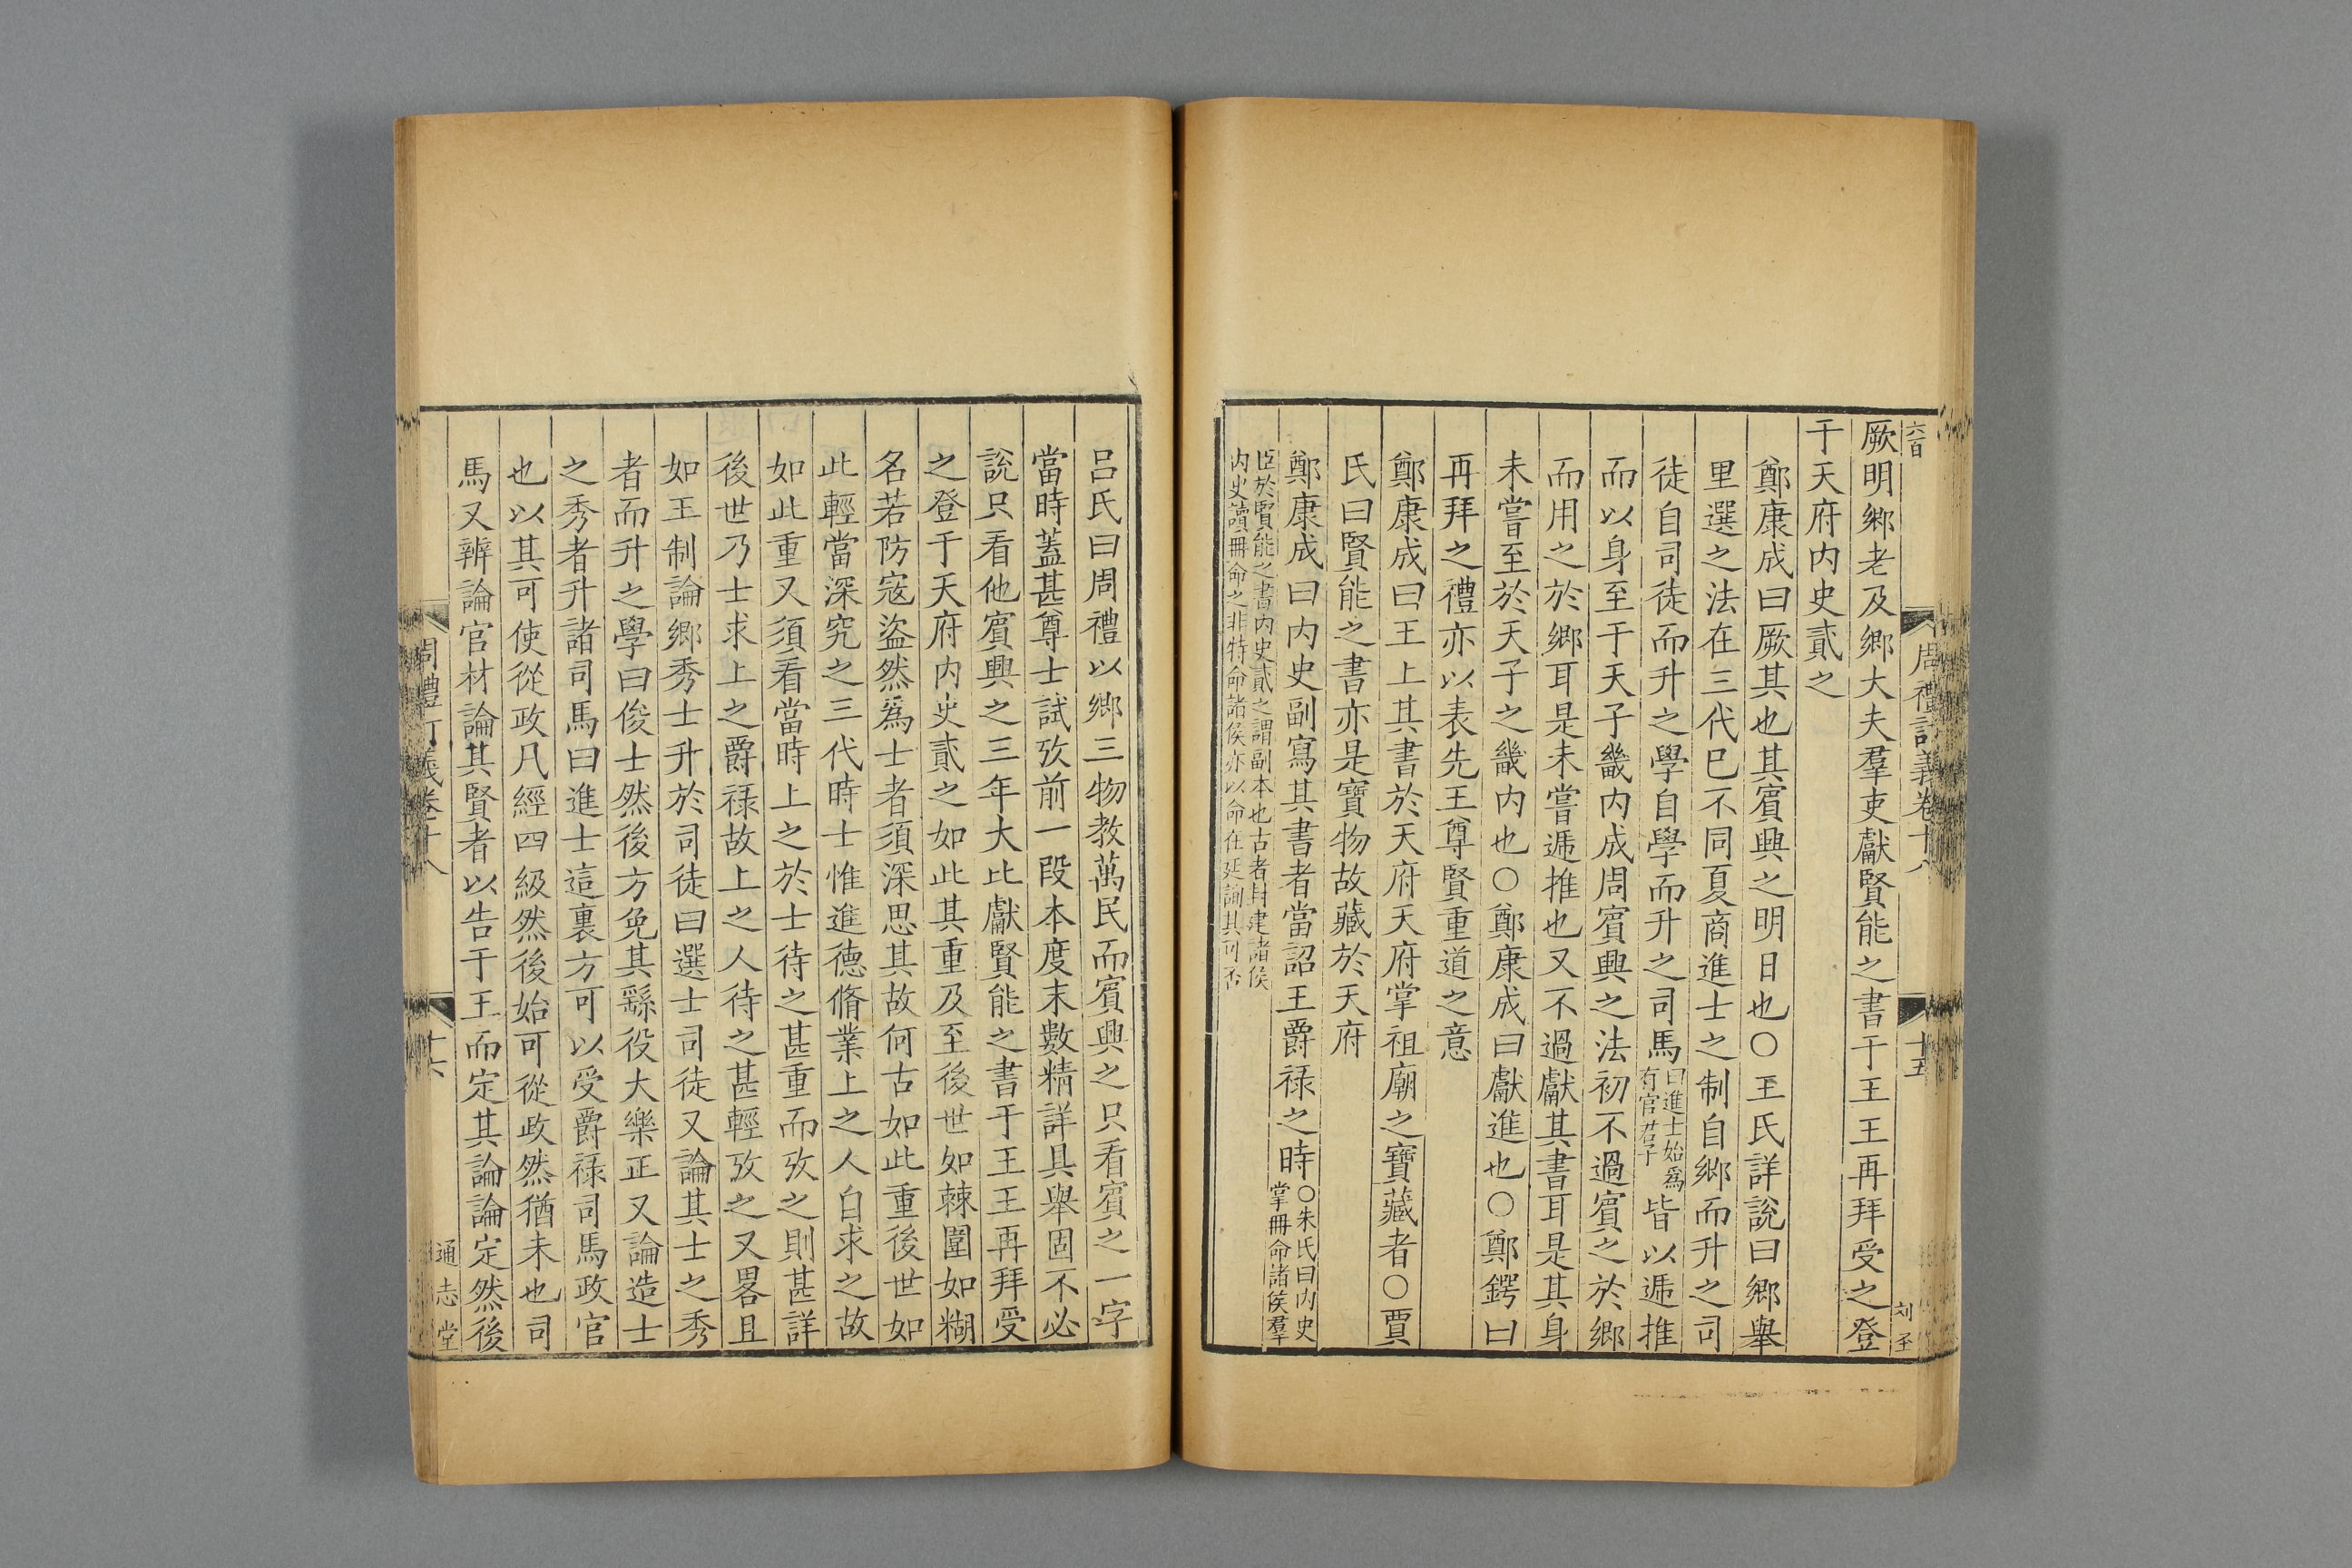 六百
周禮訂義卷十八
十五
刘圣
厥明鄉老及鄉大夫羣吏獻賢能之書于王王再拜受之登
于天府内史貳之
鄭康成曰厥其也其賓興之明日也○王氏詳說曰鄉舉
里選之法在三代已不同夏商進士之制自鄉而升之司
徒自司徒而升之學自學而升之司馬曰進士始爲有官君子皆以遞推
而以身至于天子畿内成周賓興之法初不過賓之於鄉
而用之於鄉耳是未嘗遞推也又不過獻其書耳是其身
未嘗至於天子之畿内也○鄭康成曰獻進也○鄭鍔曰
再拜之禮亦以表先王尊賢重道之意
鄭康成曰王上其書於天府天府掌祖廟之寶藏者○賈
氏曰賢能之書亦是寶物故藏於天府
鄭康成曰内史副寫其書者當詔王爵禄之時○朱氏曰内史掌冊命諸侯羣
臣於賢能之書内史貳之謂副本也古者封建諸侯
内史讀冊命之非特命諸侯亦以命在廷詢其可否
吕氏曰周禮以鄉三物教萬民而賓興之只看賓之一字
當時蓋甚尊士試攷前一段本度末數精詳具舉固不必
說只看他賓興之三年大比獻賢能之書于王王再拜受
之登于天府内史貳之如此其重及至後世如棘圍如糊
名若防寇盜然爲士者須深思其故何古如此重後世如
此輕當深究之三代時士惟進德脩業上之人自求之故
如此重又須看當時上之於士待之甚重而攷之則甚詳
後世乃士求上之爵禄故上之人待之甚輕攷之又畧且
如王制論鄉秀士升於司徒曰選士司徒又論其士之秀
者而升之學曰俊士然後方免其繇役大樂正又論造士
之秀者升諸司馬曰進士這裏方可以受爵禄司馬政官
也以其可使從政凡經四級然後始可從政然猶未也司
馬又辨論官材論其賢者以告于王而定其論論定然後
周禮訂義卷十八
十六
通志堂